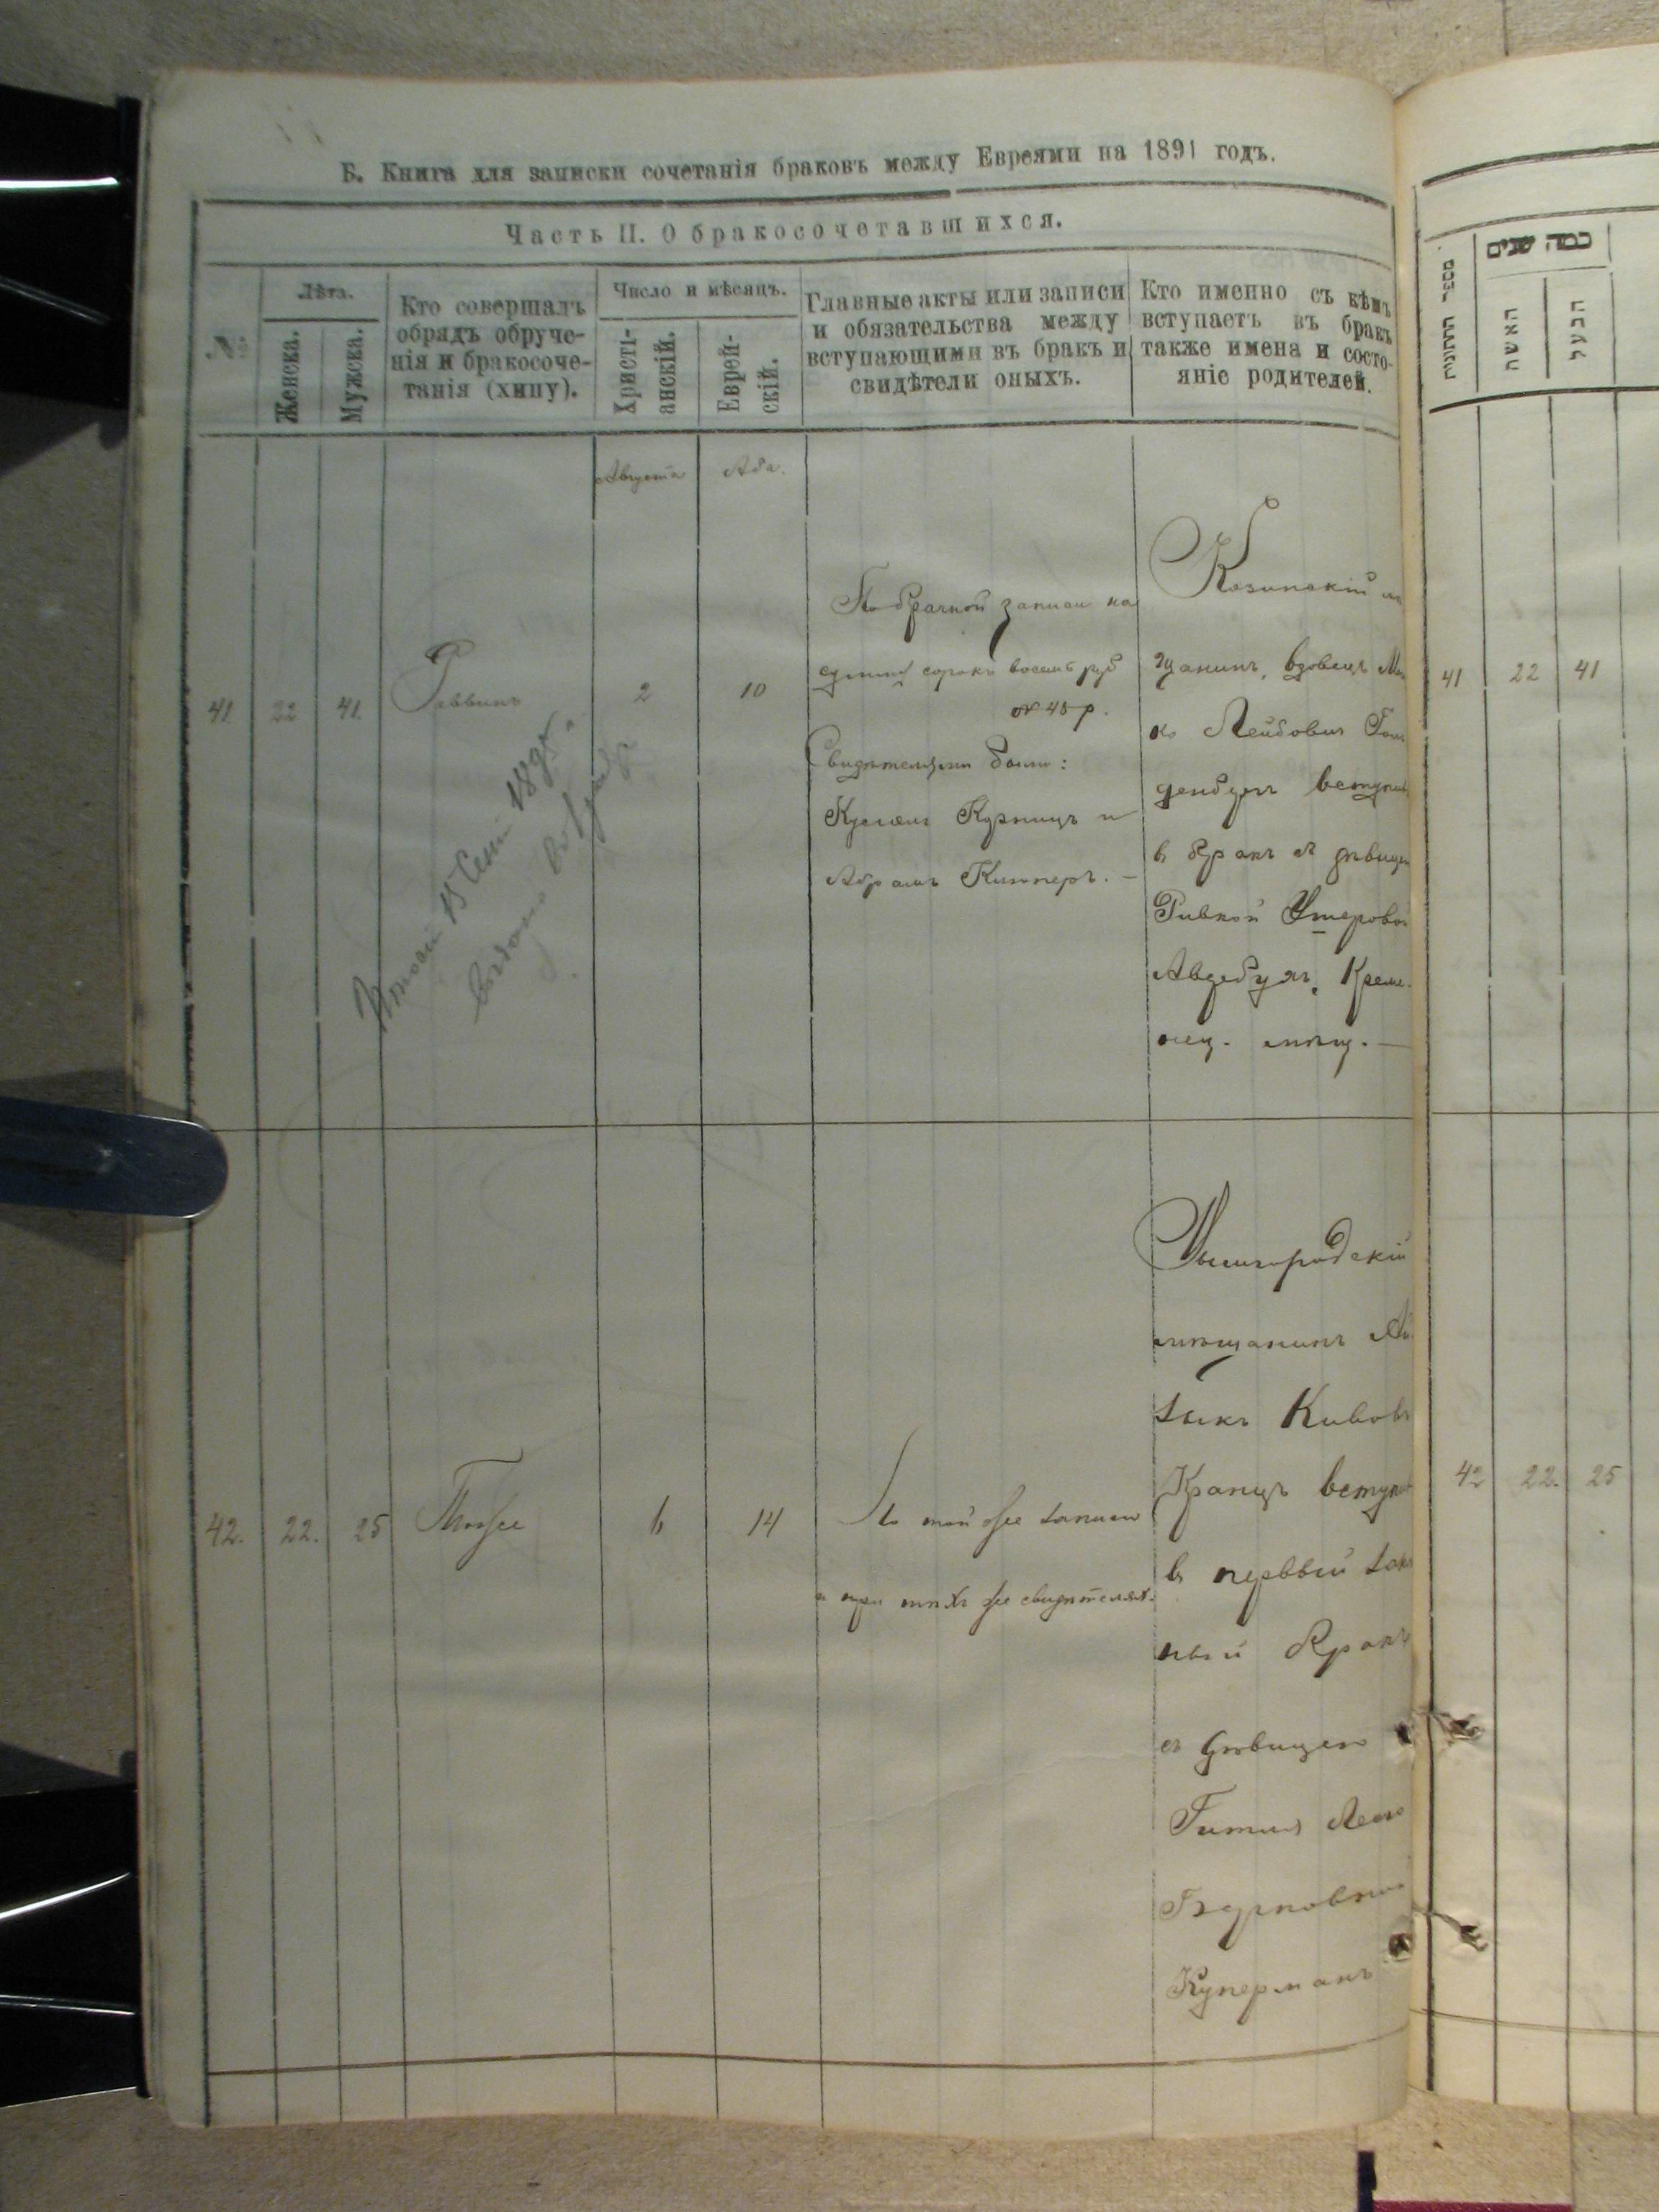 Б. Книга для записки сочетанія браковъ между Евреями на 1891 годъ.
Часть II. О бракосочетавшихся.
№
Лѣта.
Женска.
Мужска.
Кто совершалъ
обрядъ обруче-
нія и бракосоче-
танія (хипу).
Число и мѣсяцъ.
Христі-
анскій.
Еврей-
скій.
Главные акты или записи
и обязательства между
вступающими въ бракъ и
свидѣтели оныхъ.
Кто именно съ кѣмъ
вступаетъ въ бракъ
также имена и состо-
яніе родителей.
Августа
Аба.
41
22
41.
Раввинъ
2
10
По брачной записи на
сумму сорокъ восемь руб
48 р.
Свидѣтелями были:
Курницъ и
Абрамъ
Козинскій мѣ
щанинъ, вдовецъ
ко Лейбовичъ Гол
денбергъ вступилъ
въ бракъ съ дѣвицей
Ривкой
Креме.
нец. мѣщ. —
15 1895
42.
22.
25
Тотже
6
14
По той же записи
и при тѣхъ же свидѣтелях.
Вышгородскій
мѣщанинъ Ай
зикъ Кивовъ
Кранцъ вступил
въ первый зако
ный бракъ
съ дѣвицею
Гитля Лея
Берковною
Куперманъ
מספר החתונות
כמה שנים
האשה
הבעל
41 22 41
42 22. 25